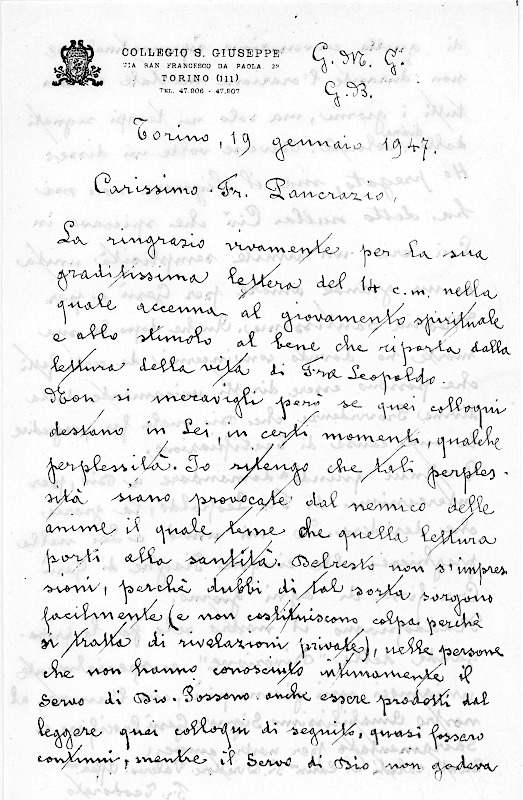 COLLEGIO S. GIUSEPPE
VIA SAN FRANCESCO DA PAOLA, 23
TORINO (111)
TEL. 47.906 - 47.907
G. M. G.
G.B.
Torino, 19 gennaio 1947.
Carissimo Fr. Pancrazio,
La ringrazio vivamente per la sua
graditissima lettera del 14 c.m. nella
quale accenna al giovamento spirituale
e allo stimolo al bene che riporta dalla
lettura della vita di Fra Leopoldo.
Non si meravigli però se quei colloqui
destano in Lei, in certi momenti, qualche
perplessità. Io ritengo che tali perples-
sità siano provocate dal nemico delle
anime il quale teme che quella lettura
porti alla santità. Delresto non s'impres
sioni, perchè dubbi di tal sorta sorgono
facilmente (e non costituiscono colpa perchè
si tratta di rivelazioni private), nelle persone
che non hanno conosciuto intimamente il
Servo di Dio. Possono anche essere prodotti dal
leggere quei colloqui di seguito, quasi fossero
continui, mentre il Servo di Dio non godeva